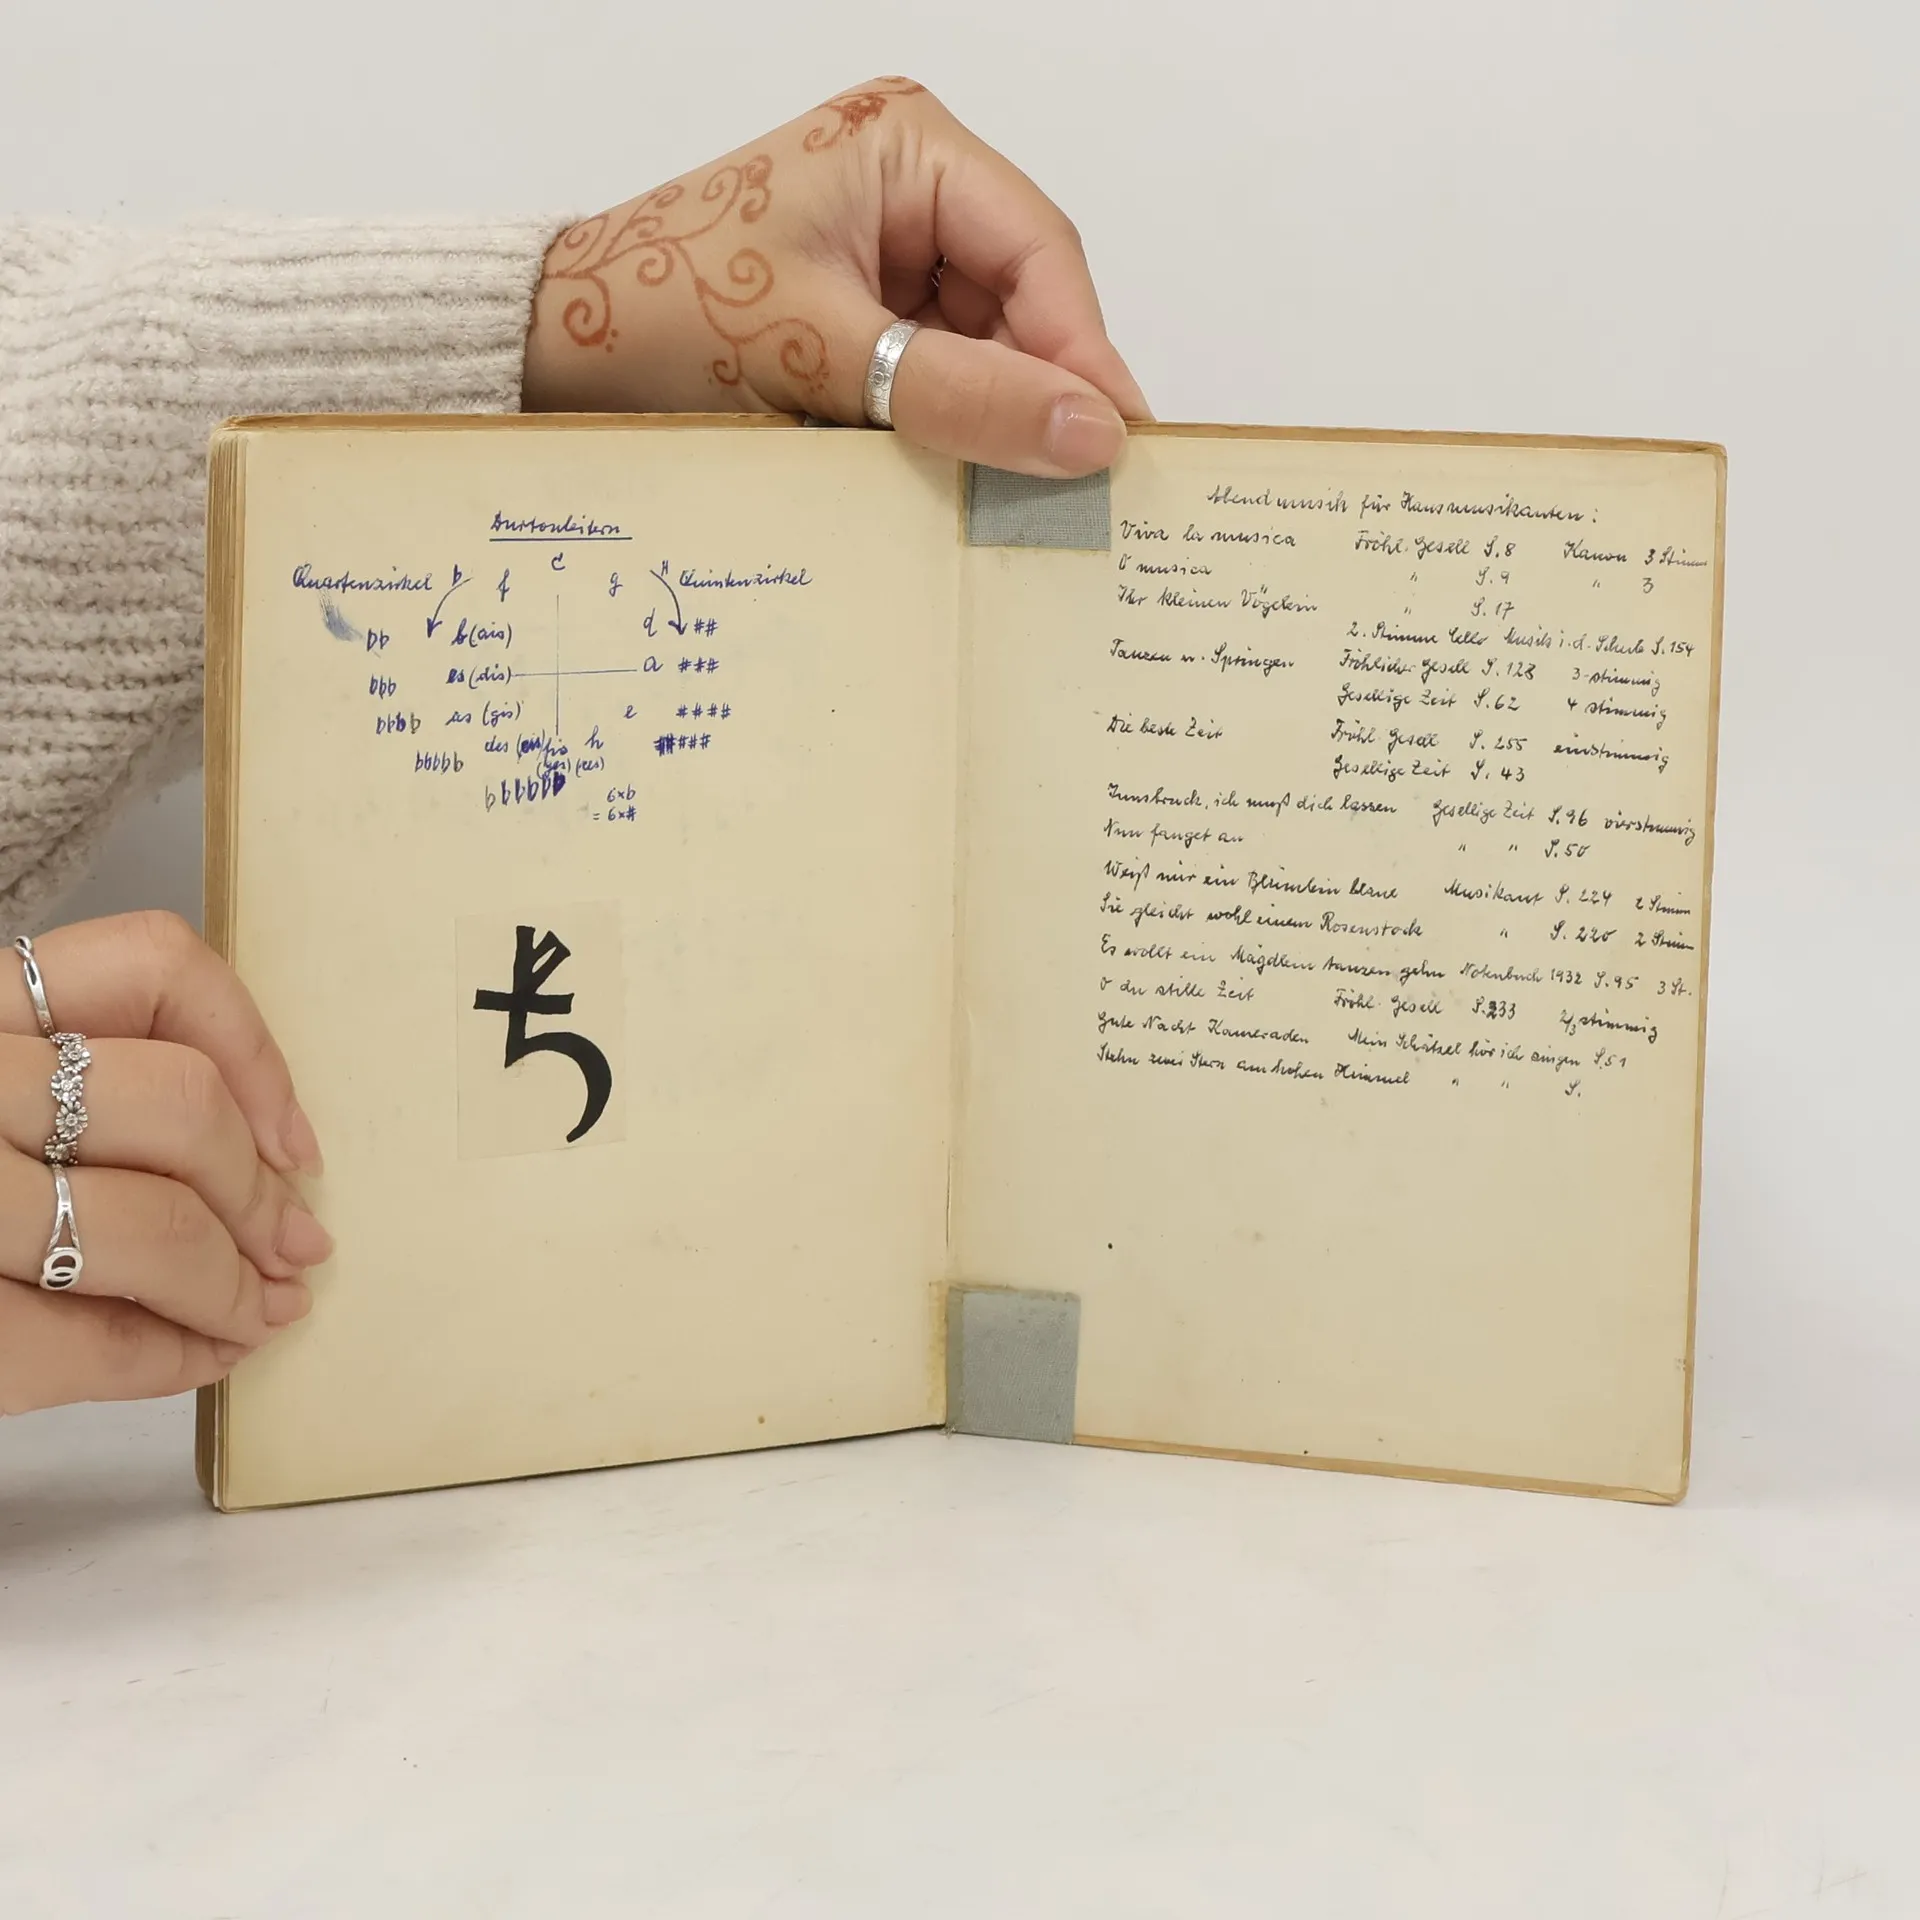 Durtonleitern
Quartenzirkel b f c g # Quintenzirkel
bb b (ais) d ##
bbb es (dis) a ###
bbbb as (gis) e ####
bbbbb des (cis) fis h #####
(ges) (ces)
bbbbbb 6xb
= 6x#
Abendmusik für Hausmusikanten:
Viva la musica Fröhl. Gesell S. 8 Kanon 3 Stimm
O musica " S. 9 " 3
Ihr kleinen Vögelein " S. 17
2. Stimme Cello Musik i. d. Schule S. 154
Tanzen u. Springen Fröhlicher Gesell S. 128 3-stimmig
Gesellige Zeit S. 62 4 stimmig
Die beste Zeit Fröhl. Gesell S. 255 einstimmig
Gesellige Zeit S. 43
Innsbruck, ich muß dich lassen Gesellige Zeit S. 96 vierstimmig
Nun fanget an " " S. 50
Weiß mir ein Blümlein blaue Musikant S. 224 2 Stimm
Sie gleicht wohl einem Rosenstock " S. 220 2 Stimm
Es wollt ein Mägdlein tanzen gehn Notenbuch 1932 S. 95 3 St.
O du stille Zeit Fröhl. Gesell S. 233 2/3 stimmig
Gute Nacht Kameraden Mein Schätzel hör ich singen S. 51
Stehn zwei Stern am hohen Himmel " " S.